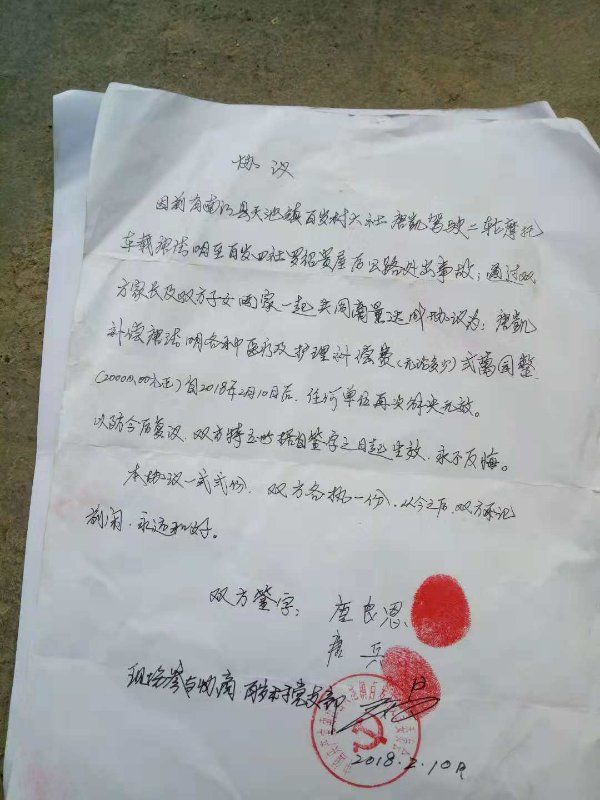 协议
因别有南江县天池镇百岁村六社唐凯驾驶二轮摩托
车载唐法明至百岁四社罗绍贵屋后公路处出事故；通过双
方家长及双方子女两家一起共同商量达成协议为：唐凯
补偿唐法明各种医疗及护理补偿费(无论多少)弍萬圆整
(20000.00元正)自2018年2月10日后，任何单位再次解决无效。
以防今后复议，双方特立此据自签字之日起生效，永不反悔。
本协议一式弍份，双方各执一份，从今之后，双方承记
前闲，永远和好。
双方签字：唐良恩
唐兵
现场参与协商 百岁村党支部
2018.2.10日